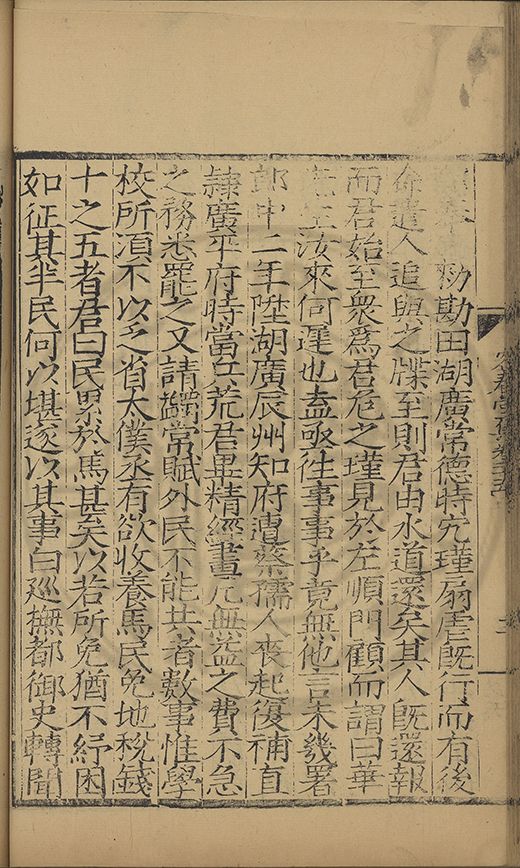 勑勘田湖廣常德時宄瑾扇虐旣行而有後
命遣人追與之牒至則君由水道還矣其人旣還報
而君始至衆爲君危之瑾見於左順門顧而謂曰華
先生汝來何遲也盍亟往事事乎竟無他言未幾署
郎中二年陞湖廣辰州知府遭蔡孺人喪起復補直
隷廣平府時當兵荒君畢精經畫凢無益之費不急
之務悉罷之又請蠲常賦外民不能共者數事惟學
校所湏不以乏省太僕丞有欲收養馬民免地稅錢
十之五者君曰民累於馬甚矣以若所免猶不紓困
如征其半民何以堪遂以其事白廵撫都御史轉聞